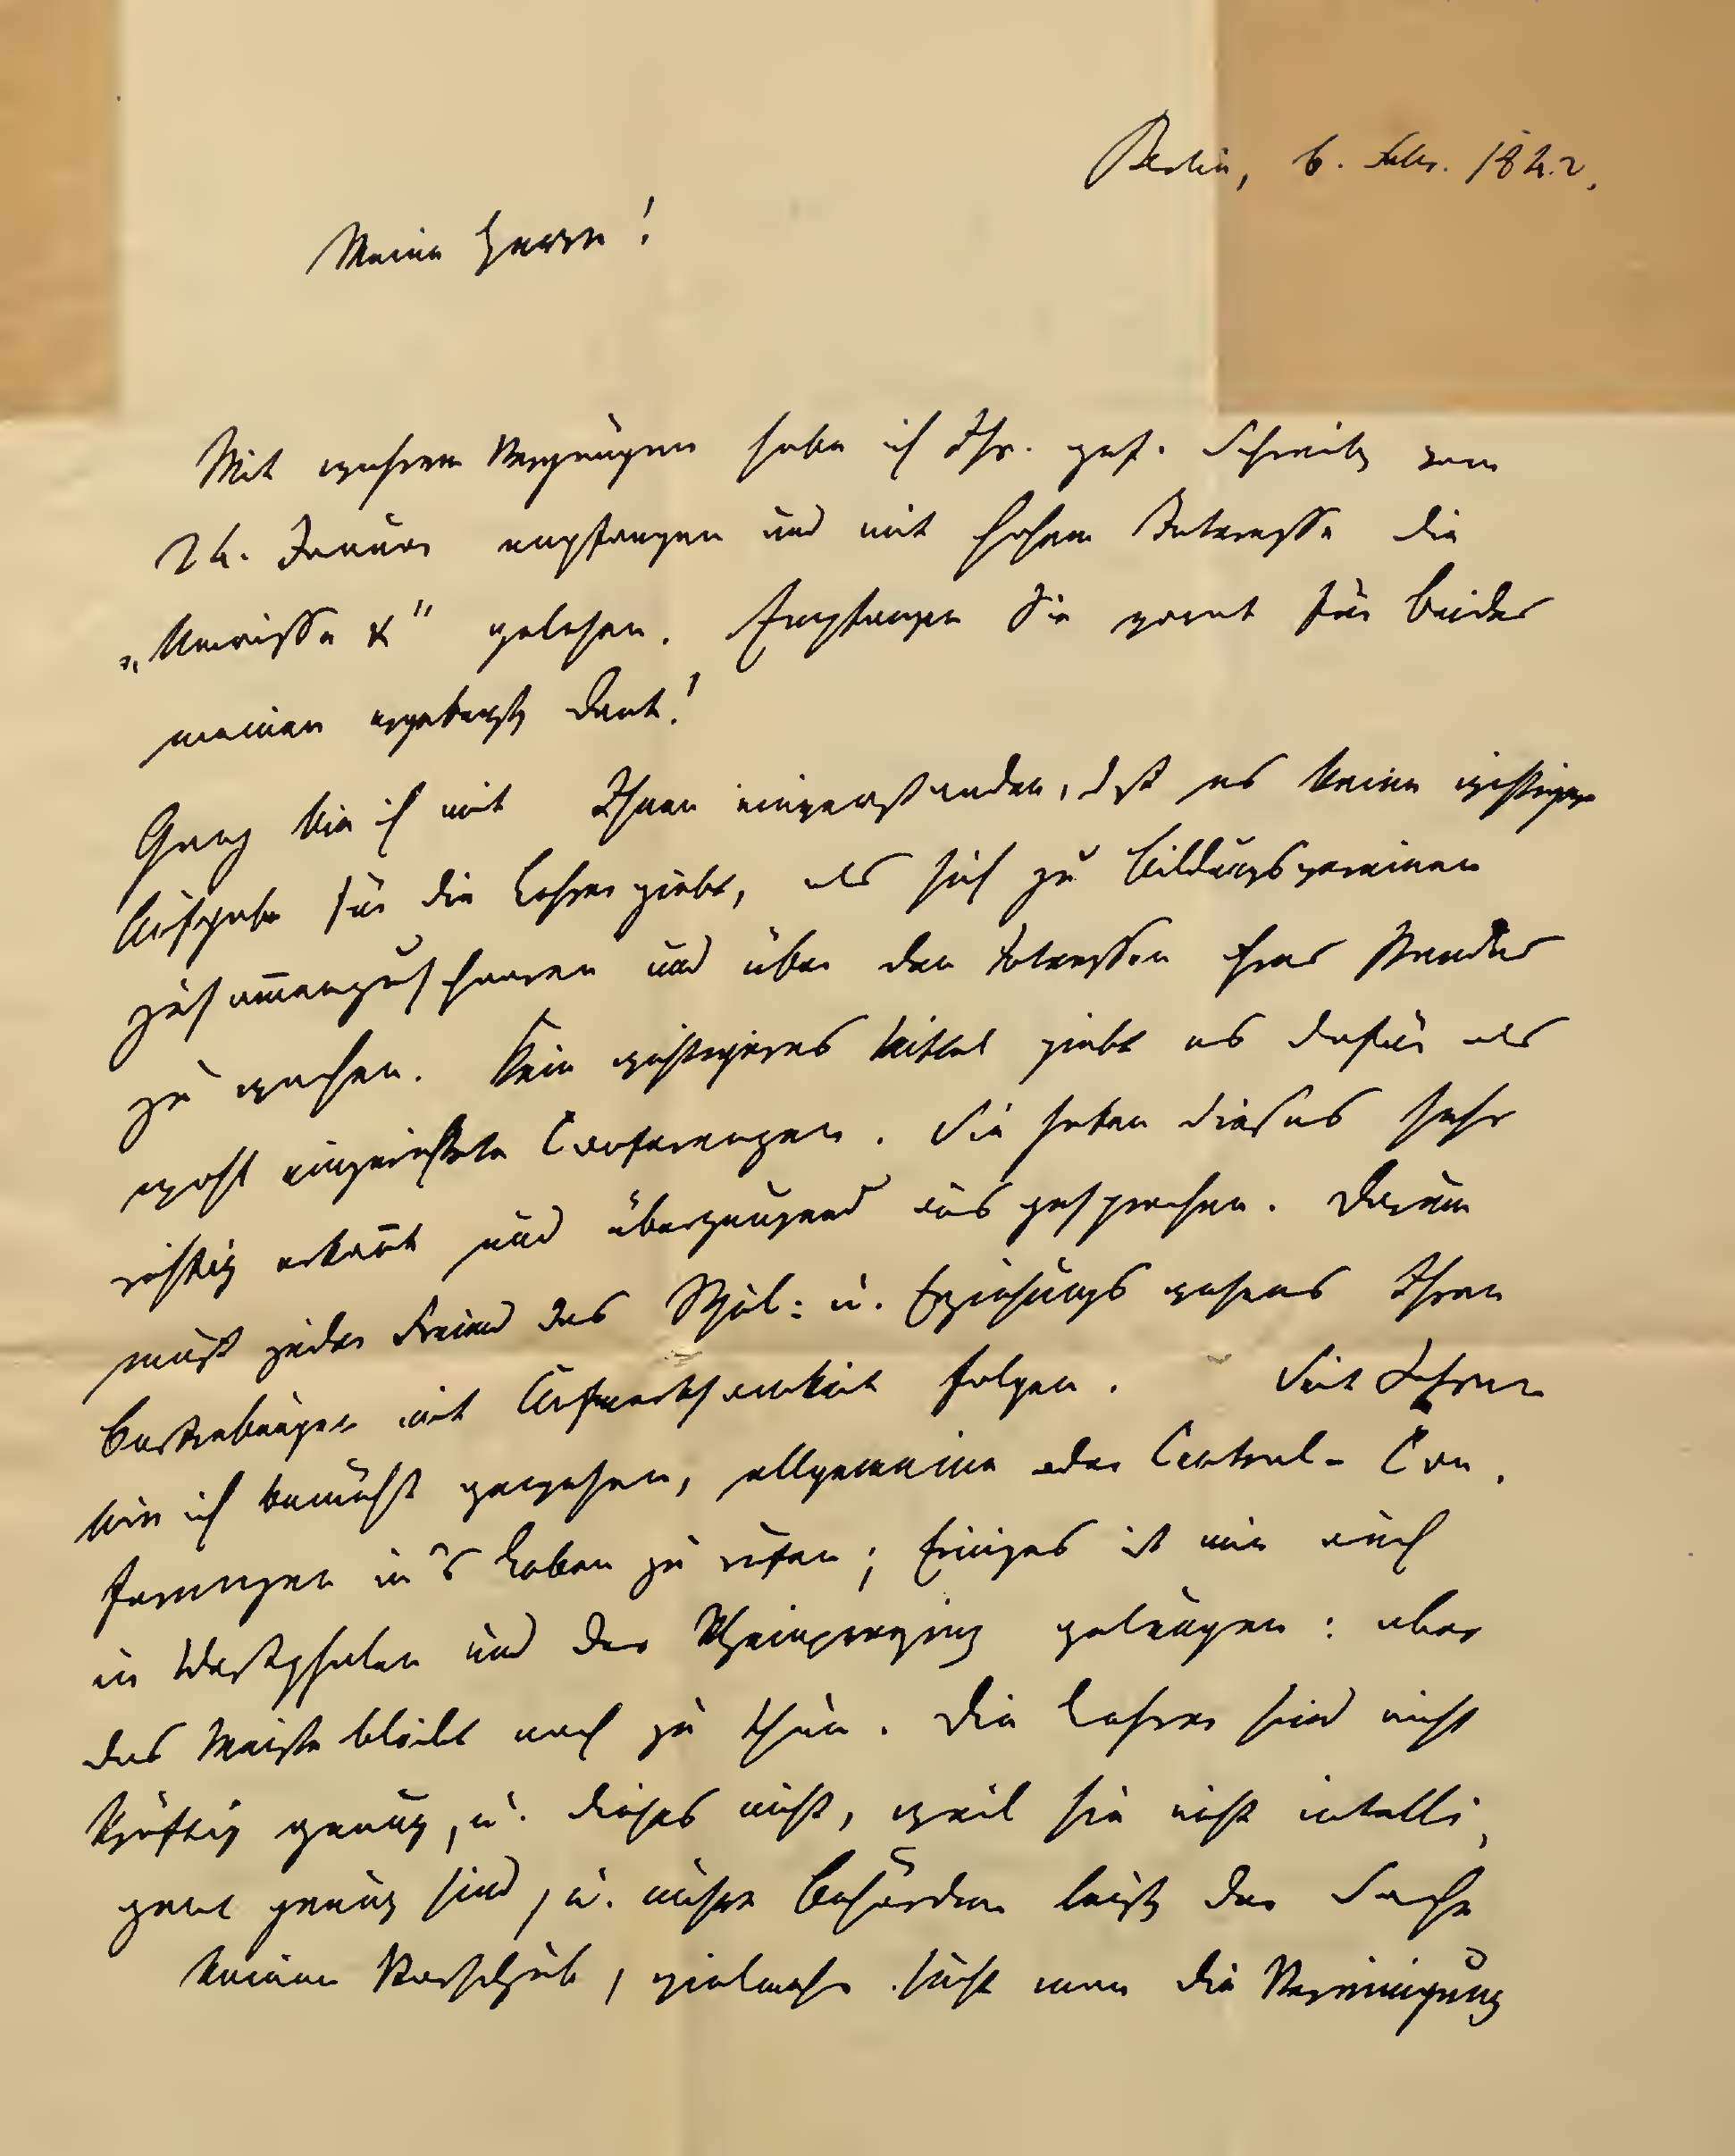 Berlin, 6. Febr. 1842.
Meine Herrn!
Mit wahrem Vergnügen habe ich Ihr. gef. Schreiben vom
24. Januar empfangen und mit hohem Interesse die
„Umrisse &" gelesen. Empfangen Sie zuerst für beides
meinen ergebensten Dank!
Ganz bin ich mit Ihnen einverstanden, daß es keine wichtigere
Aufgabe für die Lehrer giebt, als sich zu Bildungsvereinen
zusammenzuschaaren und über den Interessen ihres Standes
zu wachen. Kein wichtigeres Mittel giebt es dafür als
wohl eingerichtete Conferenzen. Sie haben dieses sehr
richtig erkannt und überzeugend ausgesprochen. Darum
muß jeder Freund des Schul- u. Erziehungswesens Ihren
Bestrebungen mit Aufmerksamkeit folgen. Seit Jahren
bin ich bemüht gewesen, allgemeine oder Central-Con-
ferenzen in's Leben zu rufen; Einiges ist mir auch
in Westphalen und der Rheinprovinz gelungen: aber
das Meiste bleibt noch zu thun. Die Lehrer sind nicht
kräftig genug, u. dieses nicht, weil sie nicht intelli-
gent genug sind, u. unsre Behörden leisten der Sache
keinen Vorschub, vielmehr sucht man die Vereinigung